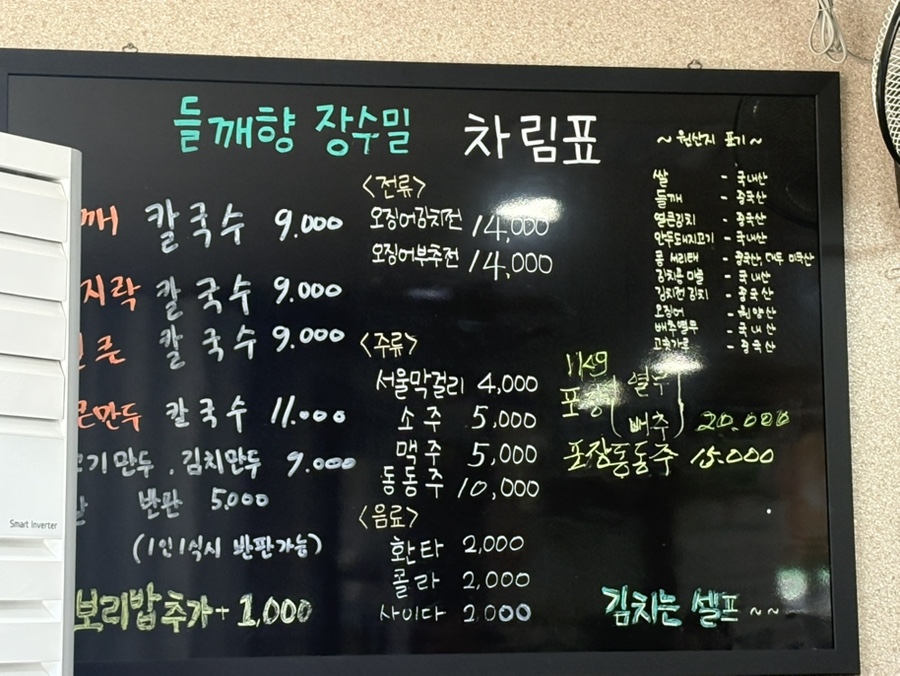 들깨향 장수밀 차림표
깨 칼국수 9.000
지락 칼국수 9.000
큰 칼국수 9.000
큰만두 칼국수 11.000
고기만두. 김치만두 9.000
반판 5.000
(1인1식시 반판가능)
보리밥추가+ 1,000
Smart Inverter
<전류>
오징어김치전 14,000
오징어부추전 14,000
<주류>
서울막걸리 4,000
소주 5,000
맥주 5,000
동동주 10,000
<음료>
환타 2,000
콜라 2,000
사이다 2,000
~ 원산지 표기 ~
쌀 - 국내산
들깨 - 중국산
열른김치 - 중국산
만두돼지고기 - 국내산
콩 서리태 - 중국산, 대두 미국산
김치용 마늘 - 국내산
김치전 김치 - 중국산
오징어 - 원양산
배추열무 - 국내산
고춧가루 - 중국산
1kg
포장 ( 열무
배추 ) 20.000
포장동동주 15.000
김치는 셀프 ~~